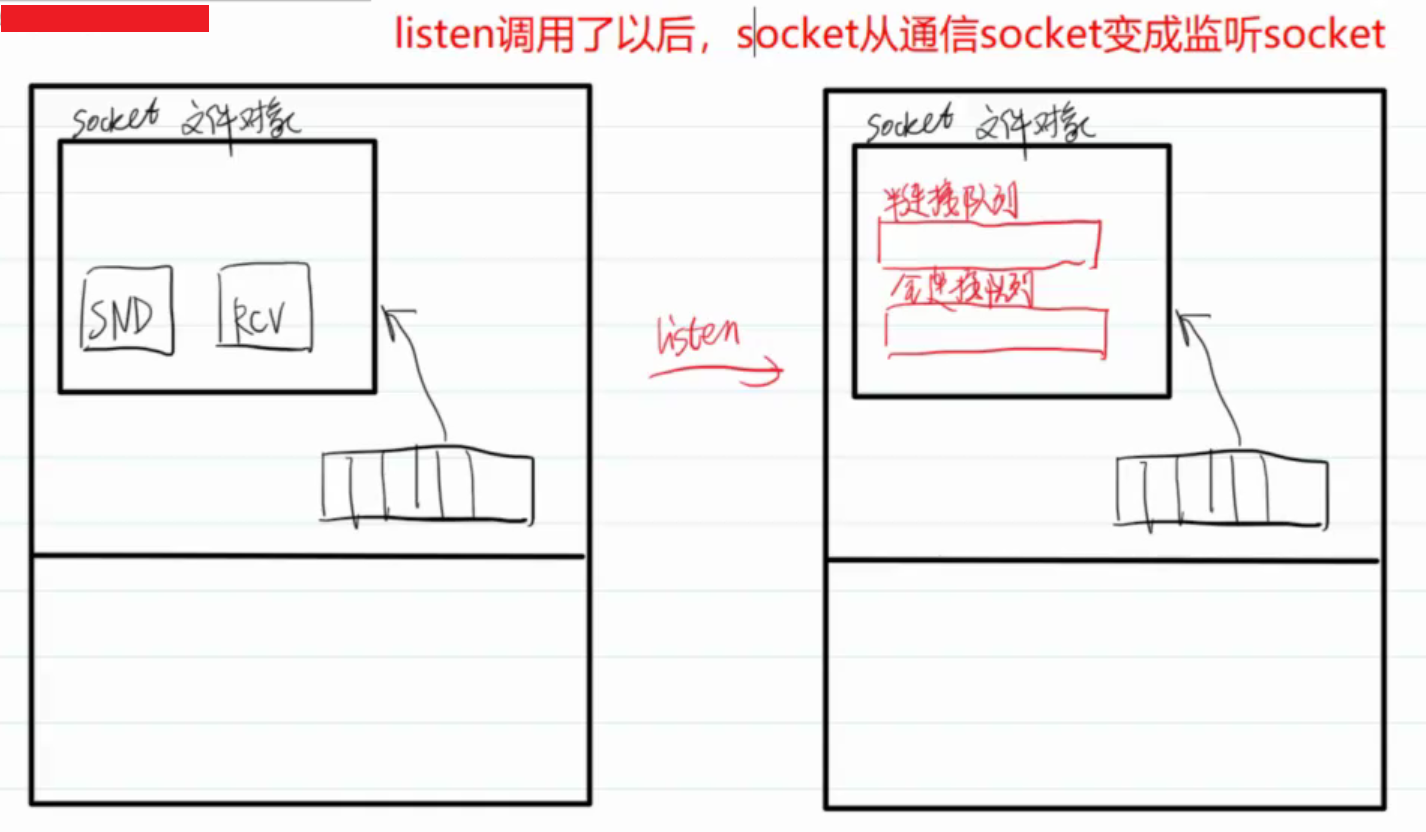 listen调用了以后，socket从通信socket变成监听socket
socket 文件对象
SND
RCV
listen
socket 文件对象
半连接队列
全连接队列